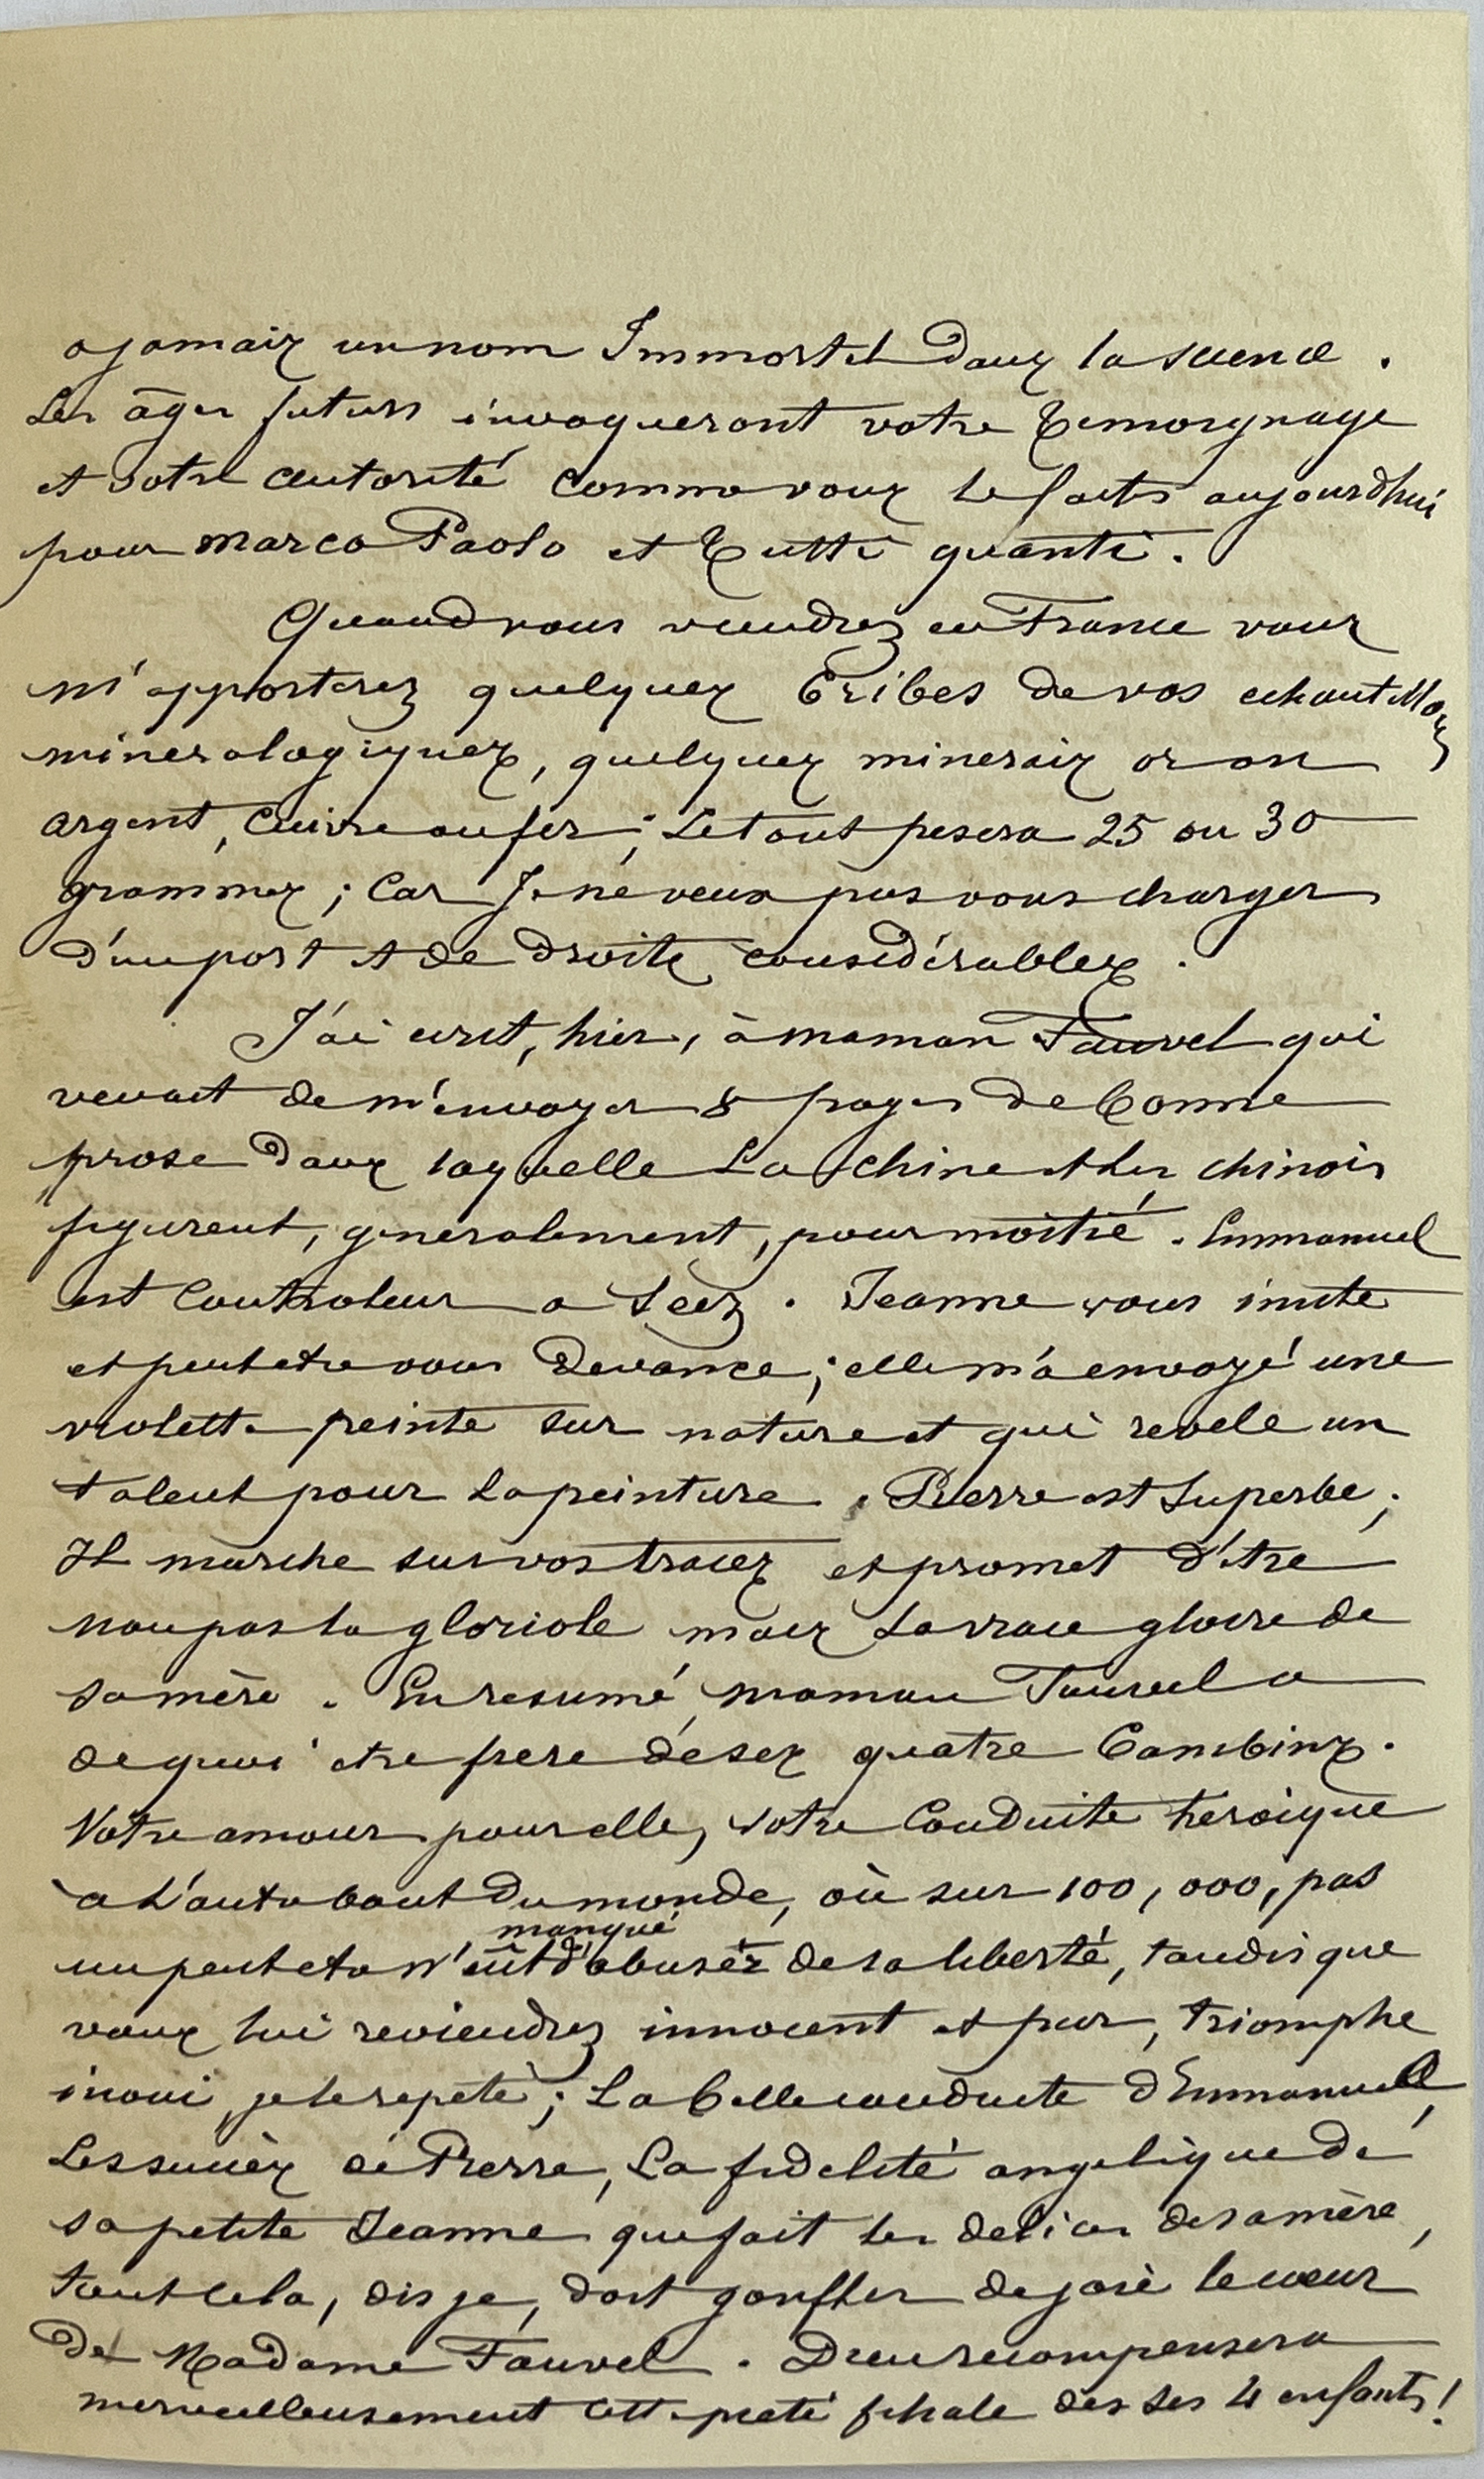 a jamais un nom Immortel dans la science.
Les âges futurs invoqueront votre temoignage
et votre autorité comme vous le faites aujourdhui
pour Marco Paolo et tutti quanti.
Quand vous viendrez en France vous
m'apporterez quelques bribes de vos echantillons
mineralogiques, quelques minerais or ou
argent, Cuivre ou fer; Le tout pesera 25 ou 30
grammes; Car Je ne veux pas vous charger
d'un port et de droits considérables.
J'ai ecrit, hier, à maman Fauvel qui
venait de m'envoyer 8 pages de bonne
prose dans laquelle La Chine et les chinois
figurent, generalement, pour moitié. Emmanuel
est Controleur a Séez. Jeanne vous imite
et peut etre vous devance; elle m'a envoyé une
violette peinte sur nature et qui revele un
talent pour la peinture. Pierre est Superbe;
Il marche sur vos traces et promet d'être
non pas la gloriole mais La vraie gloire de
sa mère. En resumé, maman Fauvel a
de quoi etre fiere de ses quatre bambins.
Votre amour pour elle, votre Conduite heroique
à L'autre bout du monde, où sur 100,000, pas
un peut etre n'eût manqué d'abuser de sa liberté, tandis que
vous lui reviendrez innocent et pur, triomphe
inoui, je le repete; La belle conduite d'Emmanuel,
Les succès de Pierre, La fidelité angelique de
sa petite Jeanne qui fait les delices de sa mère,
tout cela, dis je, doit gonfler de joie le coeur
de Madame Fauvel. Dieu recompensera
merveilleusement cette pieté filiale des ses 4 enfants!